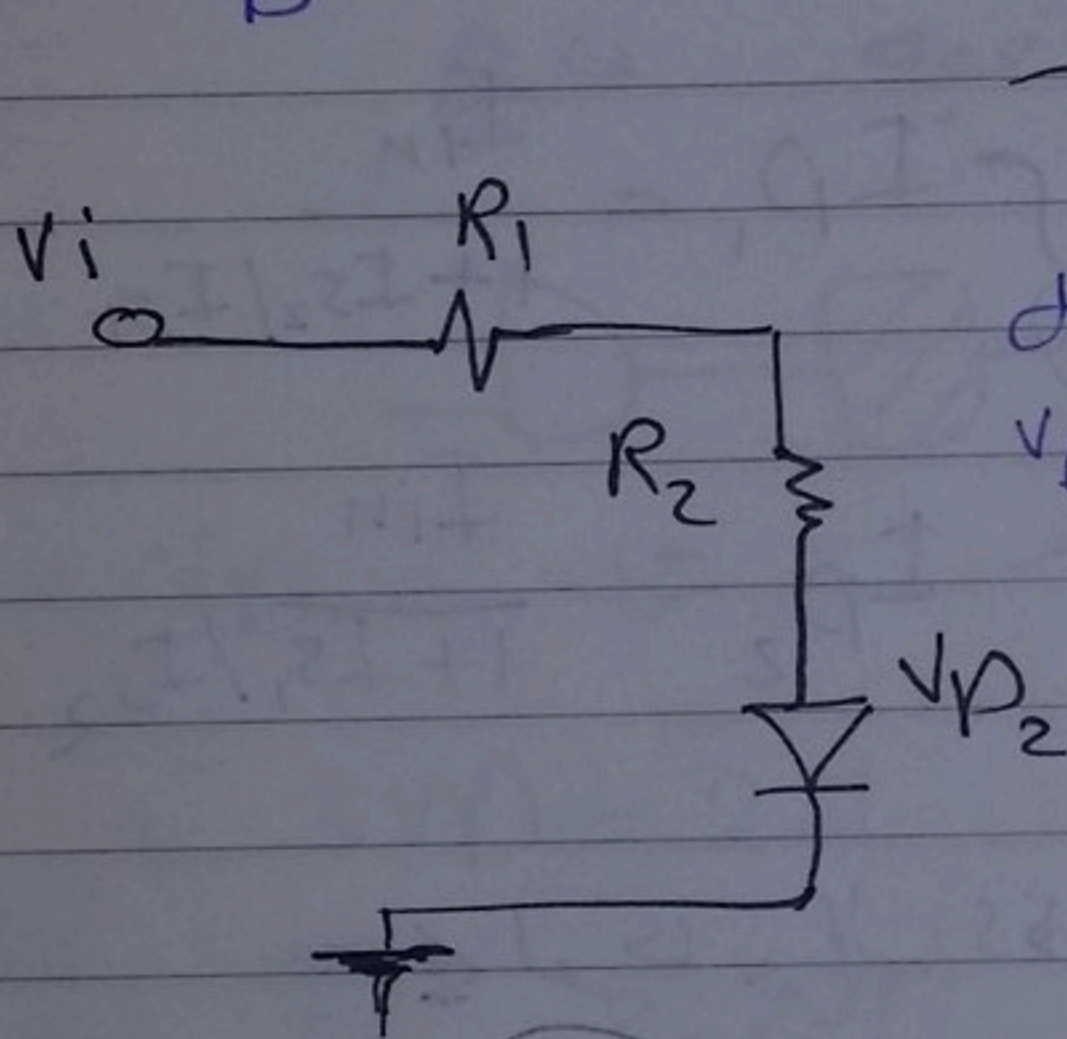 Vi
R1
R2
VD2